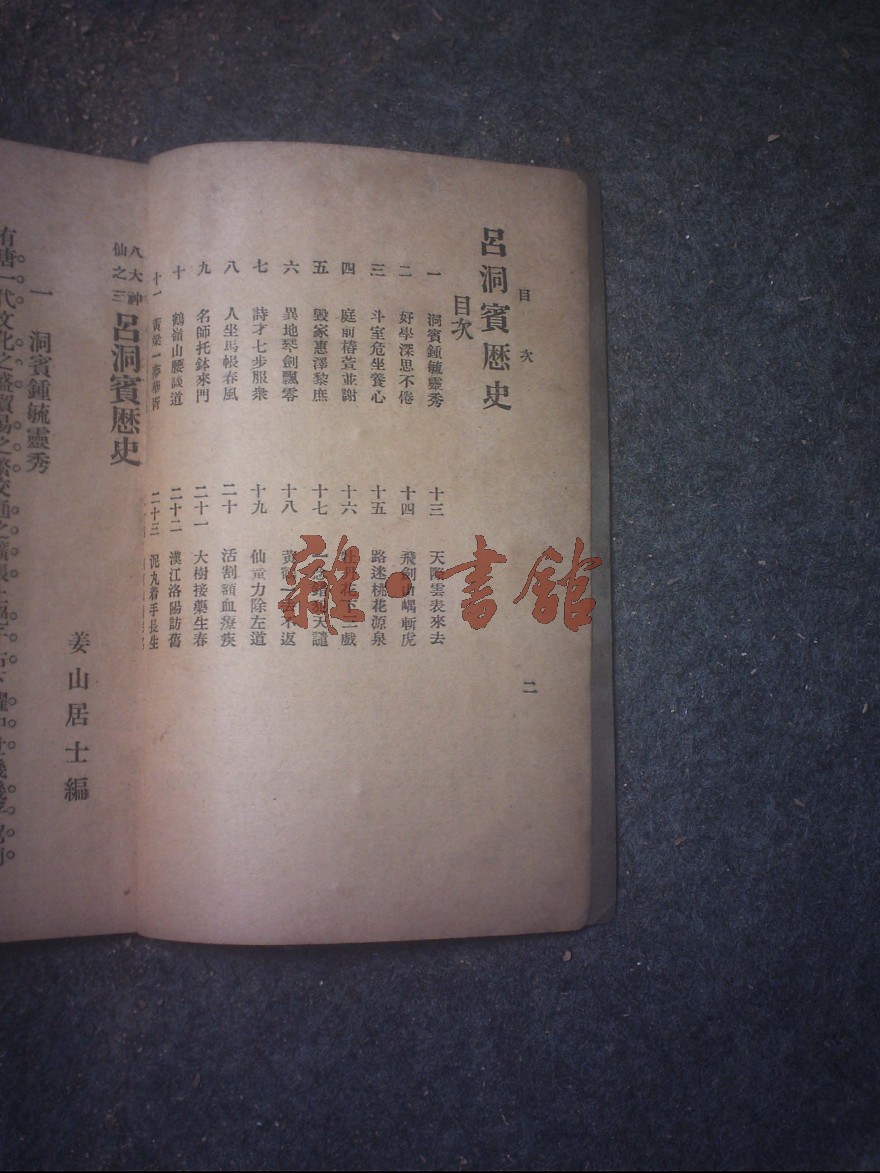 目次
二
呂洞賓歷史
目次
一 洞賓鍾毓靈秀
二 好學深思不倦
三 斗室危坐養心
四 庭前椿萱並謝
五 毀家惠澤黎庶
六 異地琴劍飄零
七 詩才七步服衆
八 人坐馬帳春風
九 名師托鉢來門
十 鶴嶺山腰談道
十一 黃粱一夢華胥
十三 天際雲表來去
十四 飛劍山嵎斬虎
十五 路迷桃花源泉
十六 牡丹花下一戲
十七 一念 天譴
十八 黃鶴一去不返
十九 仙童力除左道
二十 活割額血療疾
二十一 大樹接藥生春
二十二 漢江洛陽訪舊
二十三 泥丸着手長生
雜·書館
八大神仙之三
呂洞賓歷史
姜山居士編
一 洞賓鍾毓靈秀
有唐一代文化之盛貿易之繁交通之擴張